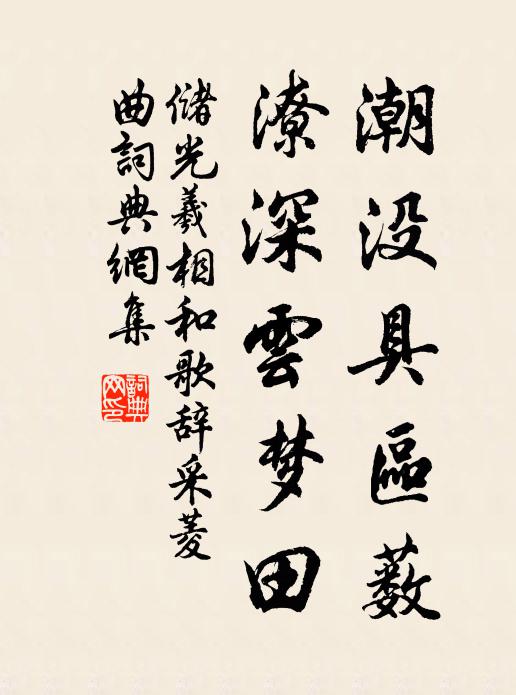 潮没具區藪
潦深雲梦田
儲光羲相和歌辞采菱
曲詞典網集
詞典
网印